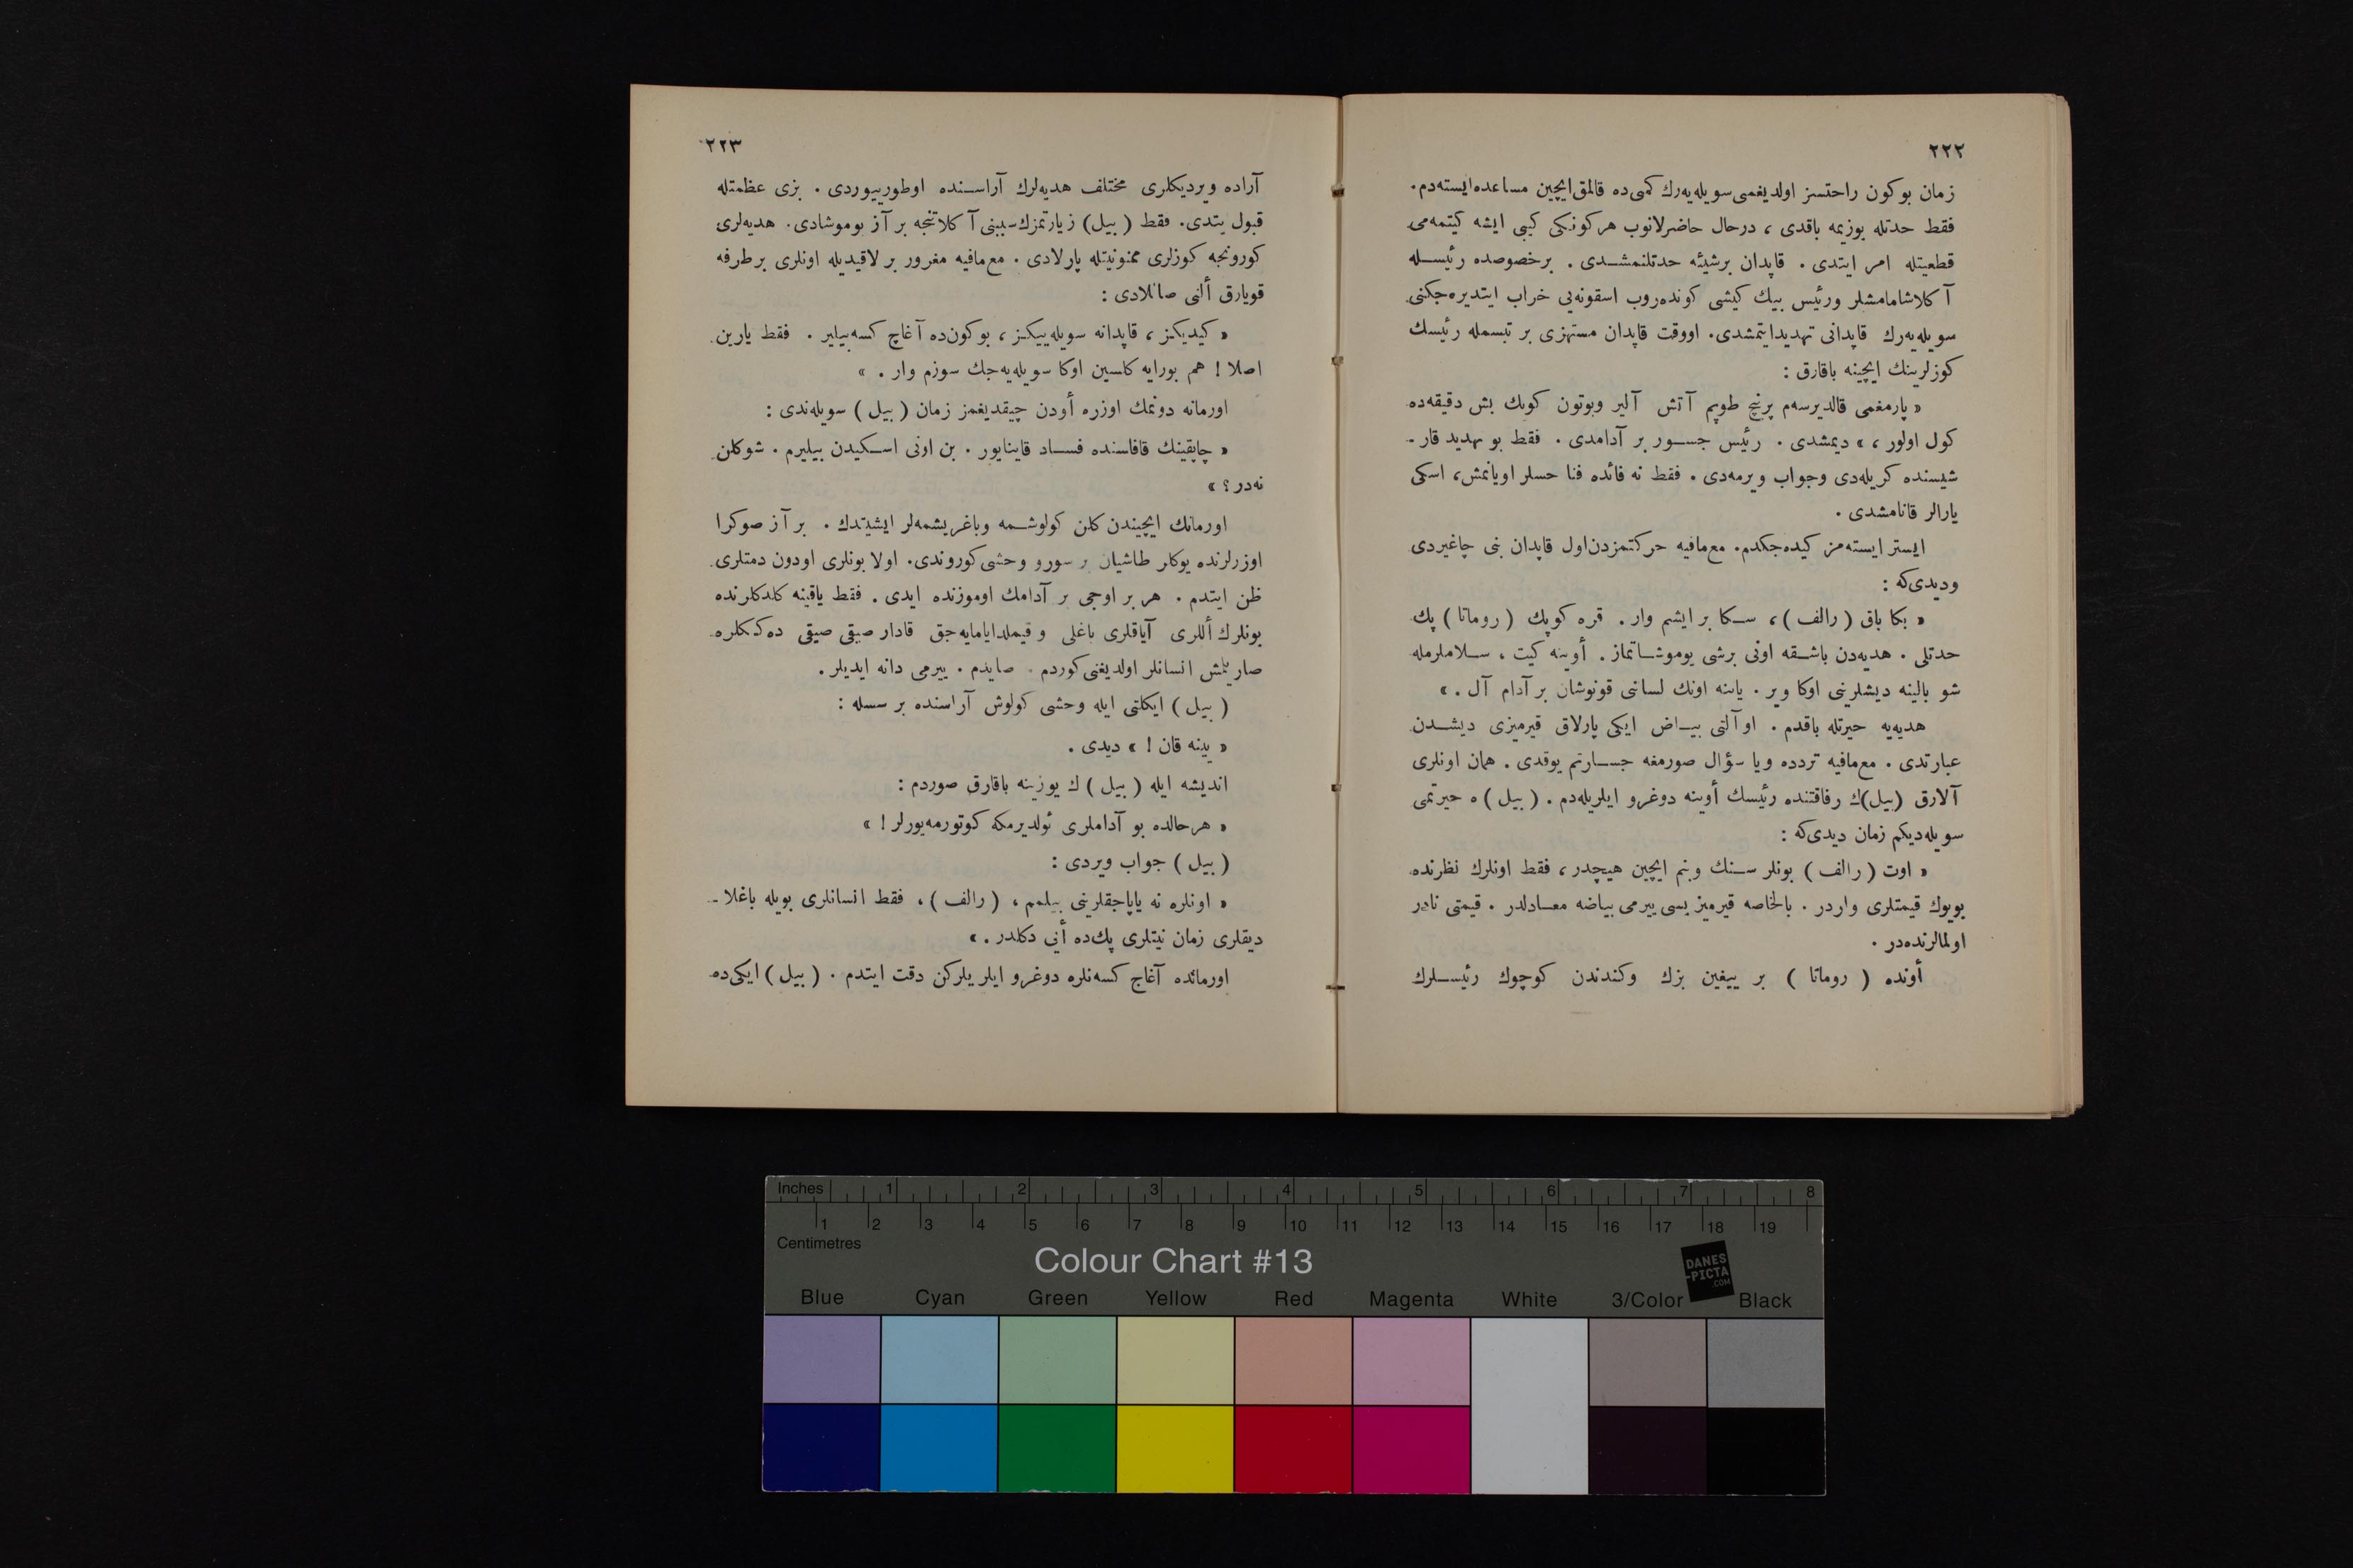 ٢٢٢
زمان بوكون راحتسز اولديغمى سويله‌يه‌رك كمى‌ده قالمق ايچين مساعده ايسته‌دم.
فقط حدتله يوزيمه باقدى ، درحال حاضرلانوب هركونكى كبى ايشه كيتمه‌مى
قطعيتله امر ايتدى . قاپدان برشيئه حدتلنمشدى . برخصوصده رئيسله
آكلاشامامشلر ورئيس بيك كيشى كونده‌روب اسقونه‌يى خراب ايتديره‌جكنى
سويله‌يه‌رك قاپدانى تهديد ايتمشدى. اووقت قاپدان مستهزى بر تبسمله رئيسك
كوزلرينك ايچينه باقارق :
« پارمغمى قالديرسه‌م پرنچ طوپم آتش آلير وبوتون كويك بش دقيقه‌ده
كول اولور ، » ديمشدى . رئيس جسور بر آدامدى . فقط بو تهديد قار ـ
شيسنده كريله‌دى وجواب ويرمه‌دى . فقط نه فائده فنا حسلر اويانمش، اسكى
يارالر قانامشدى .
ايستر ايسته‌مز كيده‌جكدم. مع‌مافيه حركتمزدن‌اول قاپدان بنى چاغيردى
وديدى‌كه :
« بكا باق ( رالف ) ، سكا بر ايشم وار . قره كوپك ( روماتا ) پك
حدتلى . هديه‌دن باشقه اونى برشى يوموشاتماز . أوينه كيت ، سلاملرمله
شو بالينه ديشلرينى اوكا وير . يانينه اونك لساننى قونوشان بر آدام آل . »
هديه‌يه حيرتله باقدم . او آلتى بياض ايكى پارلاق قيرميزى ديشدن
عبارتدى . مع‌مافيه تردده ويا سؤال صورمغه جسارتم يوقدى . همان اونلرى
آلارق (بيل)ك رفاقتنده رئيسك أوينه دوغرو ايلريله‌دم . ( بيل ) ه حيرتمى
سويله‌ديكم زمان ديدى‌كه :
« اوت ( رالف ) بونلر سنك وبنم ايچين هيچدر ، فقط اونلرك نظرنده
بويوك قيمتلرى واردر . بالخاصه قيرميزيسى ييرمى بياضه معادلدر . قيمتى نادر
اولمالرنده‌در .
أونده ( روماتا ) بر ييغين بزك وكندندن كوچوك رئيسلرك
٢٢٣
آراده ويرديكلرى مختلف هديه‌لرك آراسنده اوطورييوردى . بزى عظمتله
قبول يتدى. فقط ( بيل ) زيارتمزك سببنى آكلاتنجه بر آز يوموشادى. هديه‌لرى
كورونجه كوزلرى ممنونيتله پارلادى . مع‌مافيه مغرور بر لاقيديله اونلرى برطرفه
قويارق ألنى صاللادى :
« كيديكز ، قاپدانه سويله‌ييكز ، بوكون‌ده آغاچ كسه‌بيلير . فقط يارين
اصلا ! هم بورايه كلسين اوكا سويله‌يه‌جك سوزم وار . »
اورمانه دونمك اوزره أودن چيقديغمز زمان ( بيل ) سويله‌ندى :
« چاپقينك قافاسنده فساد قاينايور . بن اونى اسكيدن بيليرم . شوكلن
نه‌در؟ »
اورمانك ايچيندن كلن كولوشمه وباغريشمه‌لر ايشيتدك . بر آز صوكرا
اوزرلرنده يوكلر طاشيان بر سورو وحشى كوروندى. اولا بونلرى اودون دمتلرى
ظن ايتدم . هر بر اوجى بر آدامك اوموزنده ايدى . فقط ياقينه كلدكلرنده
بونلرك أللرى آياقلرى باغلى و قيملدايامايه‌جق قادار صيقى صيقى ده‌كنكلره
صاريلمش انسانلر اولديغنى كوردم . صايدم . ييرمى دانه ايديلر .
( بيل ) ايكلتى ايله وحشى كولوش آراسنده بر سسله :
« يينه قان ! » ديدى .
انديشه ايله ( بيل ) ك يوزينه باقارق صوردم :
« هرحالده بو آداملرى ئولديرمكه كوتورمه‌يورلر ! »
( بيل ) جواب ويردى :
« اونلره نه ياپاجقلرينى بيلمم ، ( رالف ) ، فقط انسانلرى بويله باغلا ـ
ديقلرى زمان نيتلرى پك‌ده أيى دكلدر . »
اورمانده آغاج كسه‌نلره دوغرو ايلريلركن دقت ايتدم . ( بيل ) ايكى‌ده
Inches 1 2 3 4 5 6 7 8
1 2 3 4 5 6 7 8 9 10 11 12 13 14 15 16 17 18 19
Centimetres
Colour Chart #13
DANES
-PICTA
.COM
Blue Cyan Green Yellow Red Magenta White 3/Color Black